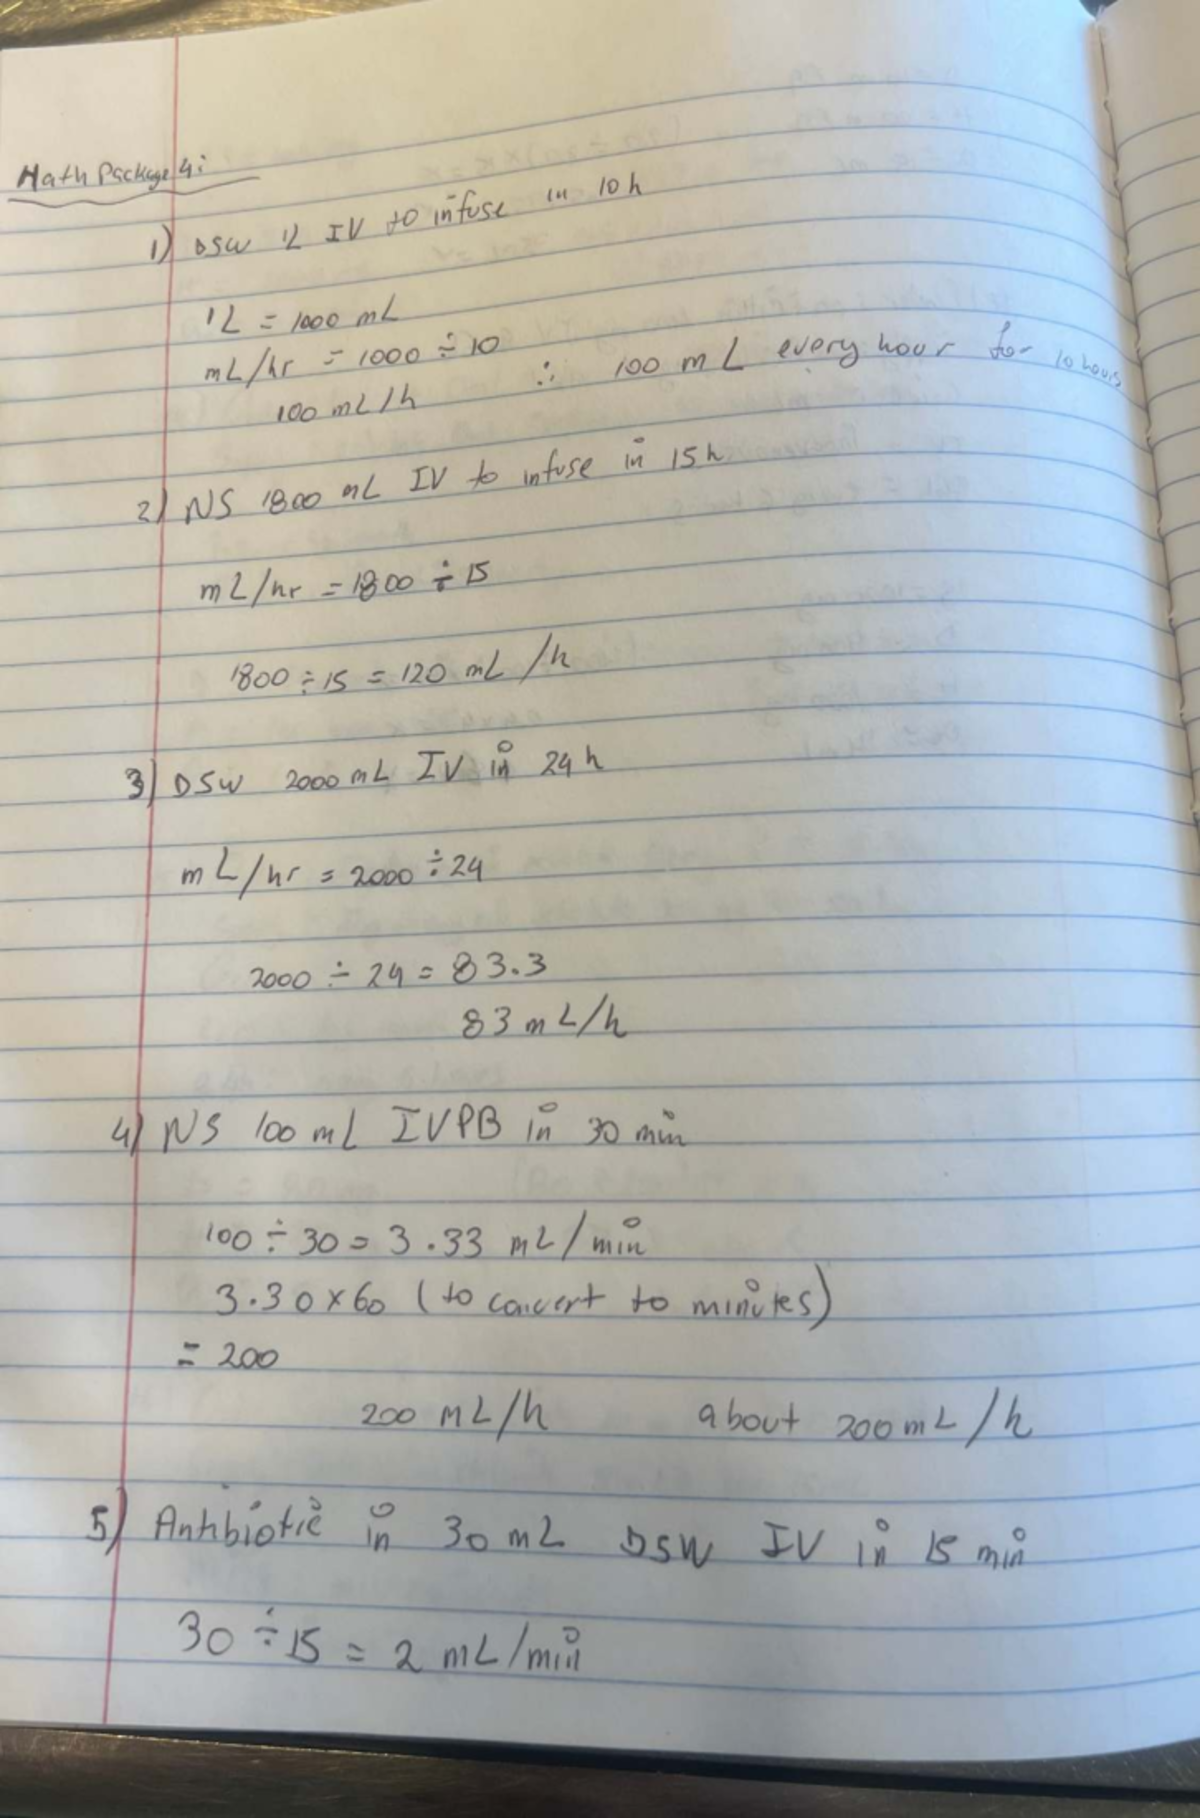 Math Package 4:
1) D5W 1L IV to infuse in 10h
1L = 1000 mL
mL/hr = 1000 ÷ 10
100 mL/h ∴ 100 mL every hour for 10 hours
2) NS 1800 mL IV to infuse in 15h
mL/hr = 1800 ÷ 15
1800 ÷ 15 = 120 mL /h
3) D5W 2000 mL IV in 24h
mL/hr = 2000 ÷ 24
2000 ÷ 24 = 83.3
83 mL/h
4) NS 100 mL IVPB in 30 min
100 ÷ 30 = 3.33 mL/min
3.30 x 60 (to convert to minutes)
= 200
200 mL/h about 200 mL/h
5) Antibiotic in 30 mL D5W IV in 15 min
30 ÷ 15 = 2 mL/min